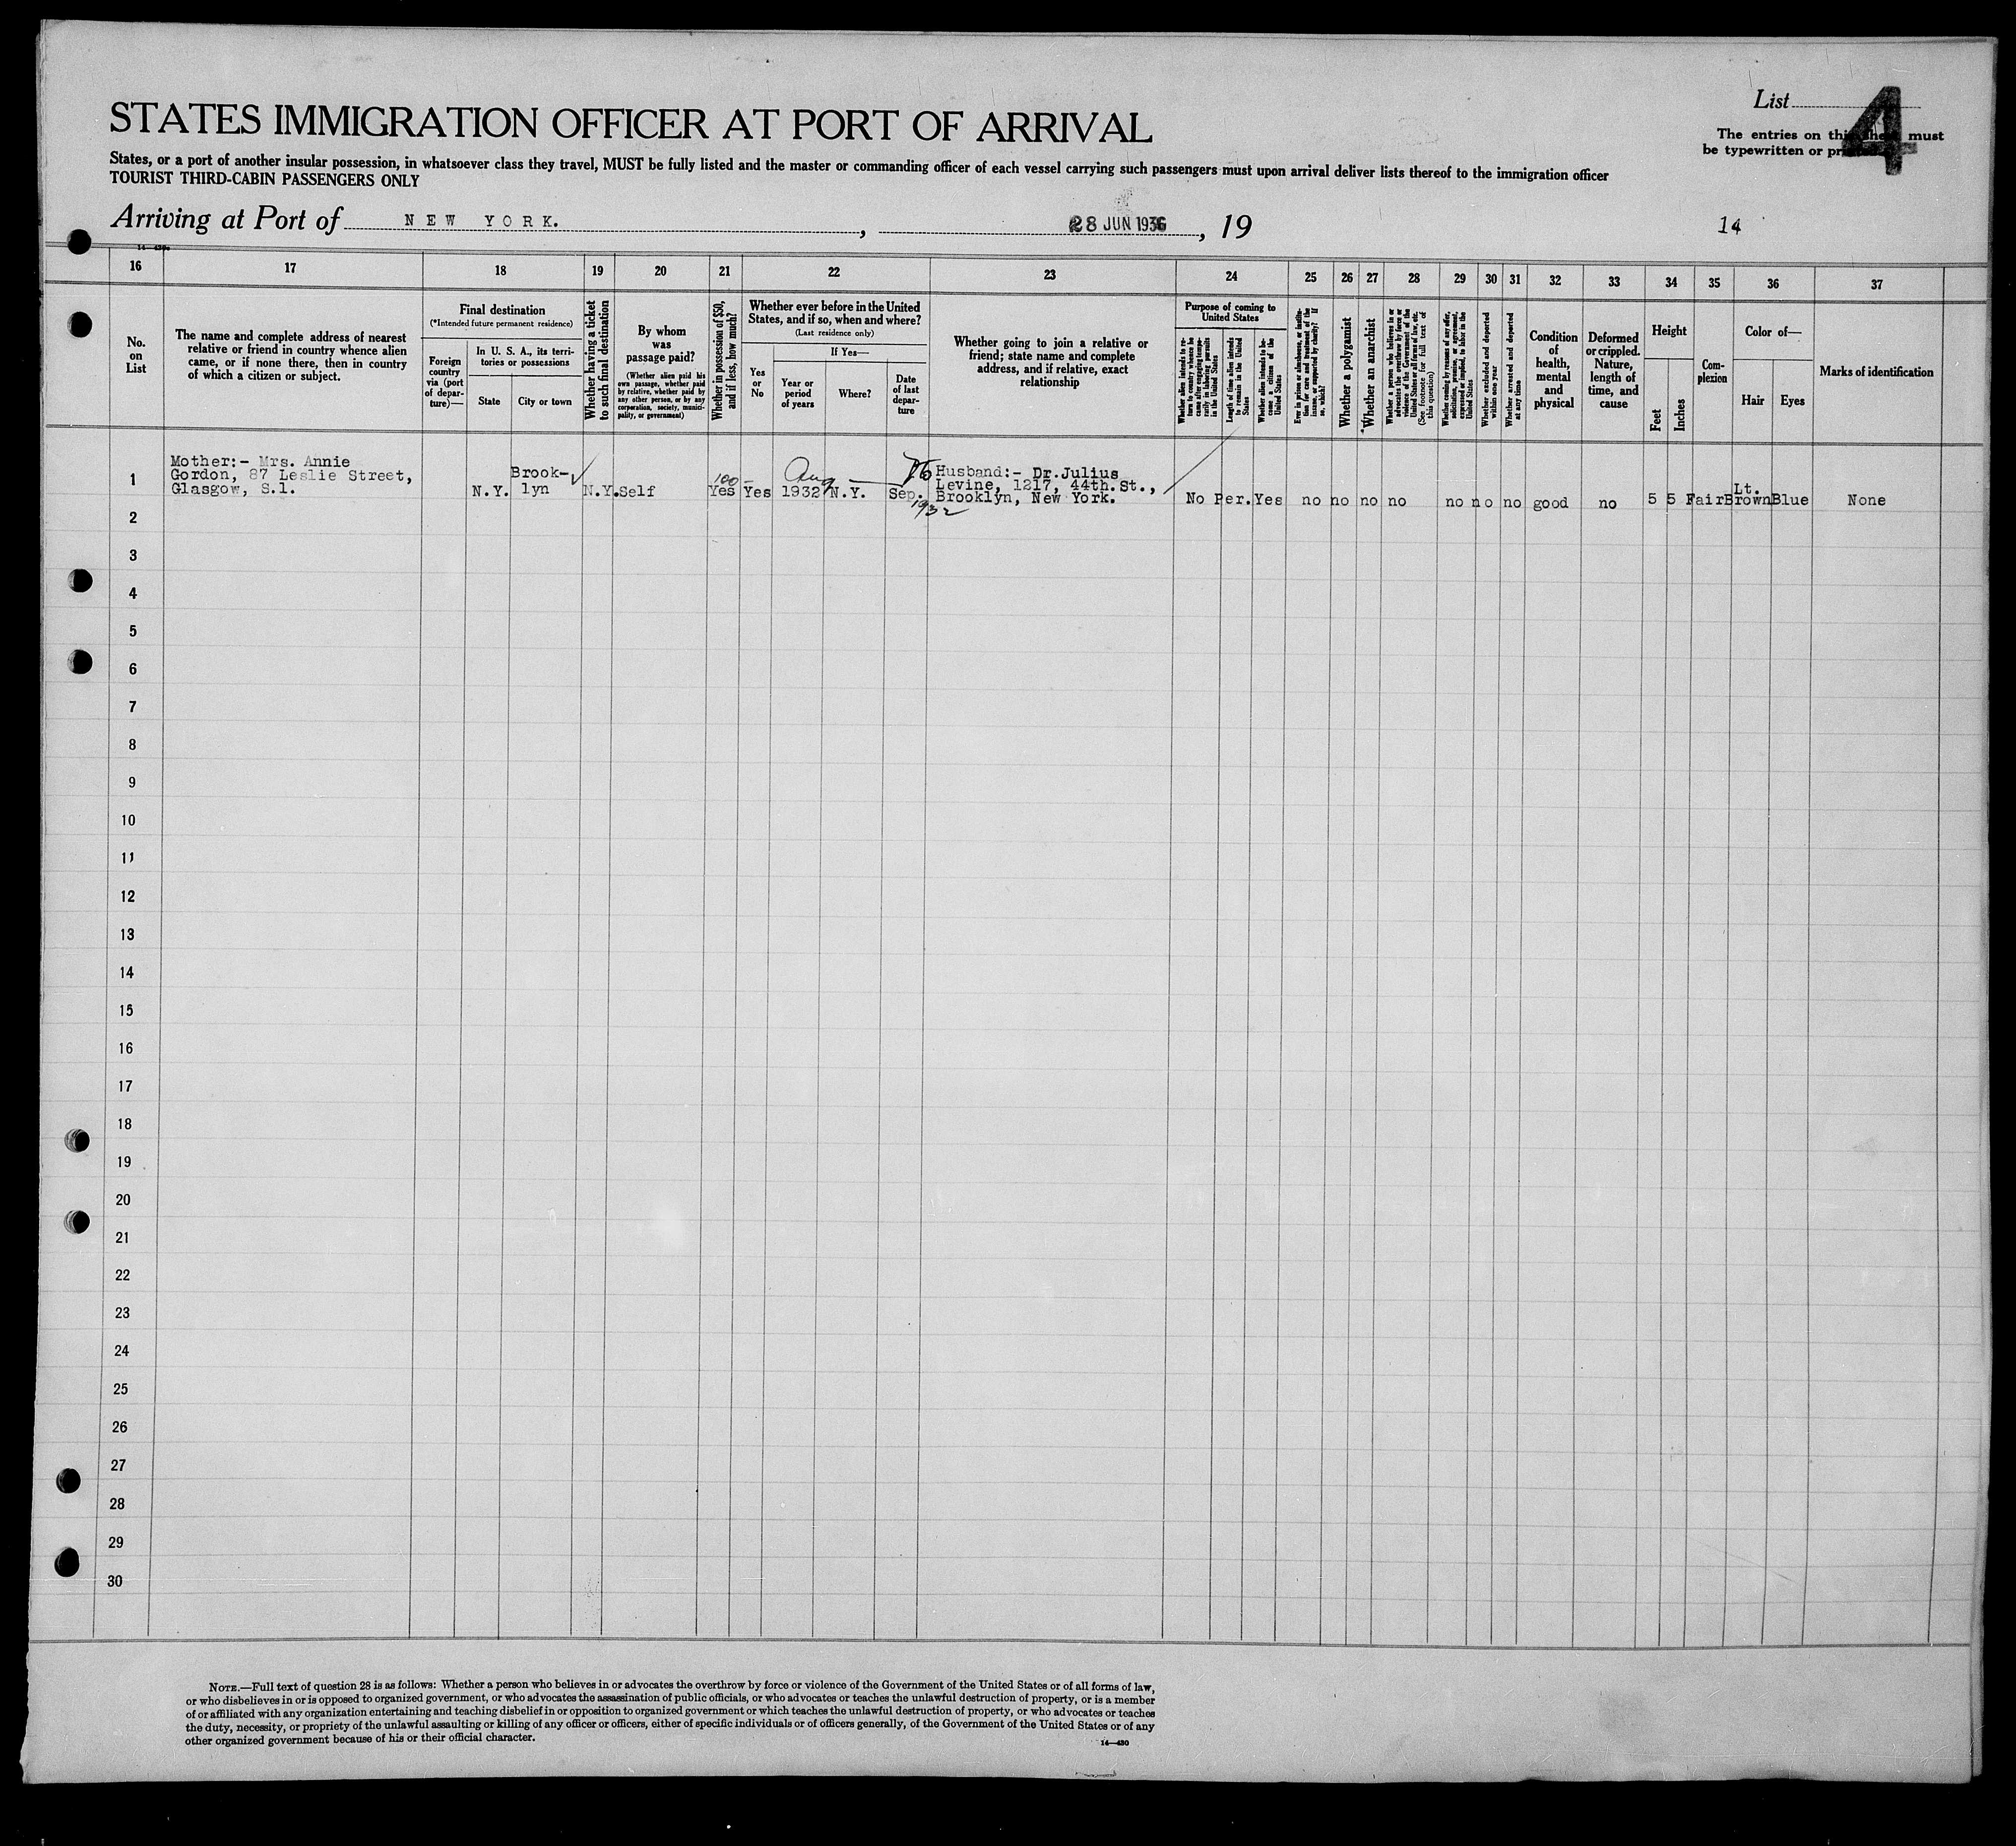 STATES IMMIGRATION OFFICER AT PORT OF ARRIVAL
List
4
The entries on this sheet must
be typewritten or printed
States, or a port of another insular possession, in whatsoever class they travel, MUST be fully listed and the master or commanding officer of each vessel carrying such passengers must upon arrival deliver lists thereof to the immigration officer
TOURIST THIRD-CABIN PASSENGERS ONLY
Arriving at Port of NEW YORK. , 28 JUN 1936, 19
14
16 17 18 19 20 21 22 23 24 25 26 27 28 29 30 31 32 33 34 35 36 37
No.
on
List
The name and complete address of nearest
relative or friend in country whence alien
came, or if none there, then in country
of which a citizen or subject.
Final destination
(*Intended future permanent residence)
Foreign
country
via (port
of depar-
ture)—
In U. S. A., its terri-
tories or possessions
State
City or town
Whether having a ticket
to such final destination
By whom
was
passage paid?
(Whether alien paid his
own passage, whether paid
by relative, whether paid by
any other person, or by any
corporation, society, munici-
pality, or government)
Whether in possession of $50,
and if less, how much?
Whether ever before in the United
States, and if so, when and where?
(Last residence only)
Yes
or
No
If Yes—
Year or
period
of years
Where?
Date
of last
depar-
ture
Whether going to join a relative or
friend; state name and complete
address, and if relative, exact
relationship
Purpose of coming to
United States
Whether alien intends to re-
turn to country whence he
came after engaging tempo-
rarily in laboring pursuits
in the United States
Length of time alien intends
to remain in the United
States
Whether alien intends to be-
come a citizen of the
United States
Ever in prison or almshouse, or institu-
tion for care and treatment of the
insane, or supported by charity? If
so, which?
Whether a polygamist
Whether an anarchist
Whether a person who believes in or
advocates the overthrow by force or
violence of the Government of the
United States or all forms of law, etc.
(See footnote for full text of
this question)
Whether coming by reason of any offer,
solicitation, promise, or agreement,
expressed or implied, to labor in the
United States
Whether excluded and deported
within one year
Whether arrested and deported
at any time
Condition
of
health,
mental
and
physical
Deformed
or crippled.
Nature,
length of
time, and
cause
Height
Feet
Inches
Com-
plexion
Color of—
Hair
Eyes
Marks of identification
1
Mother:- Mrs. Annie
Gordon, 87 Leslie Street,
Glasgow, S.1.
N.Y.
Brook-
lyn
N.Y.
Self
100
Yes
Yes
Aug
1932
N.Y.
Sep.
1932
Husband:- Dr.Julius
Levine, 1217, 44th.St.,
Brooklyn, New York.
No Per. Yes no no no no no no no good no 5 5 Fair
Lt.
Brown Blue None
2
3
4
5
6
7
8
9
10
11
12
13
14
15
16
17
18
19
20
21
22
23
24
25
26
27
28
29
30
NOTE.—Full text of question 28 is as follows: Whether a person who believes in or advocates the overthrow by force or violence of the Government of the United States or of all forms of law,
or who disbelieves in or is opposed to organized government, or who advocates the assassination of public officials, or who advocates or teaches the unlawful destruction of property, or is a member
of or affiliated with any organization entertaining and teaching disbelief in or opposition to organized government or which teaches the unlawful destruction of property, or who advocates or teaches
the duty, necessity, or propriety of the unlawful assaulting or killing of any officer or officers, either of specific individuals or of officers generally, of the Government of the United States or of any
other organized government because of his or their official character.
14—430